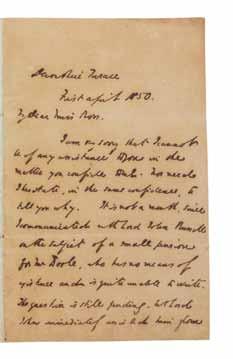 Devonshire Terrace
First April 1850.
My Dear Miss Ross.
I am very sorry that I cannot
be of any assistance to you in the
matter you confide to me. Nor need I
hesitate, in the same confidence, to
tell you why. It is not a month, since
I communicated with Lord John Russell
on the subject of a small pension
for Mr Poole, who has no means of
existence and is quite unable to write.
The question is still pending. Lord
John immediately